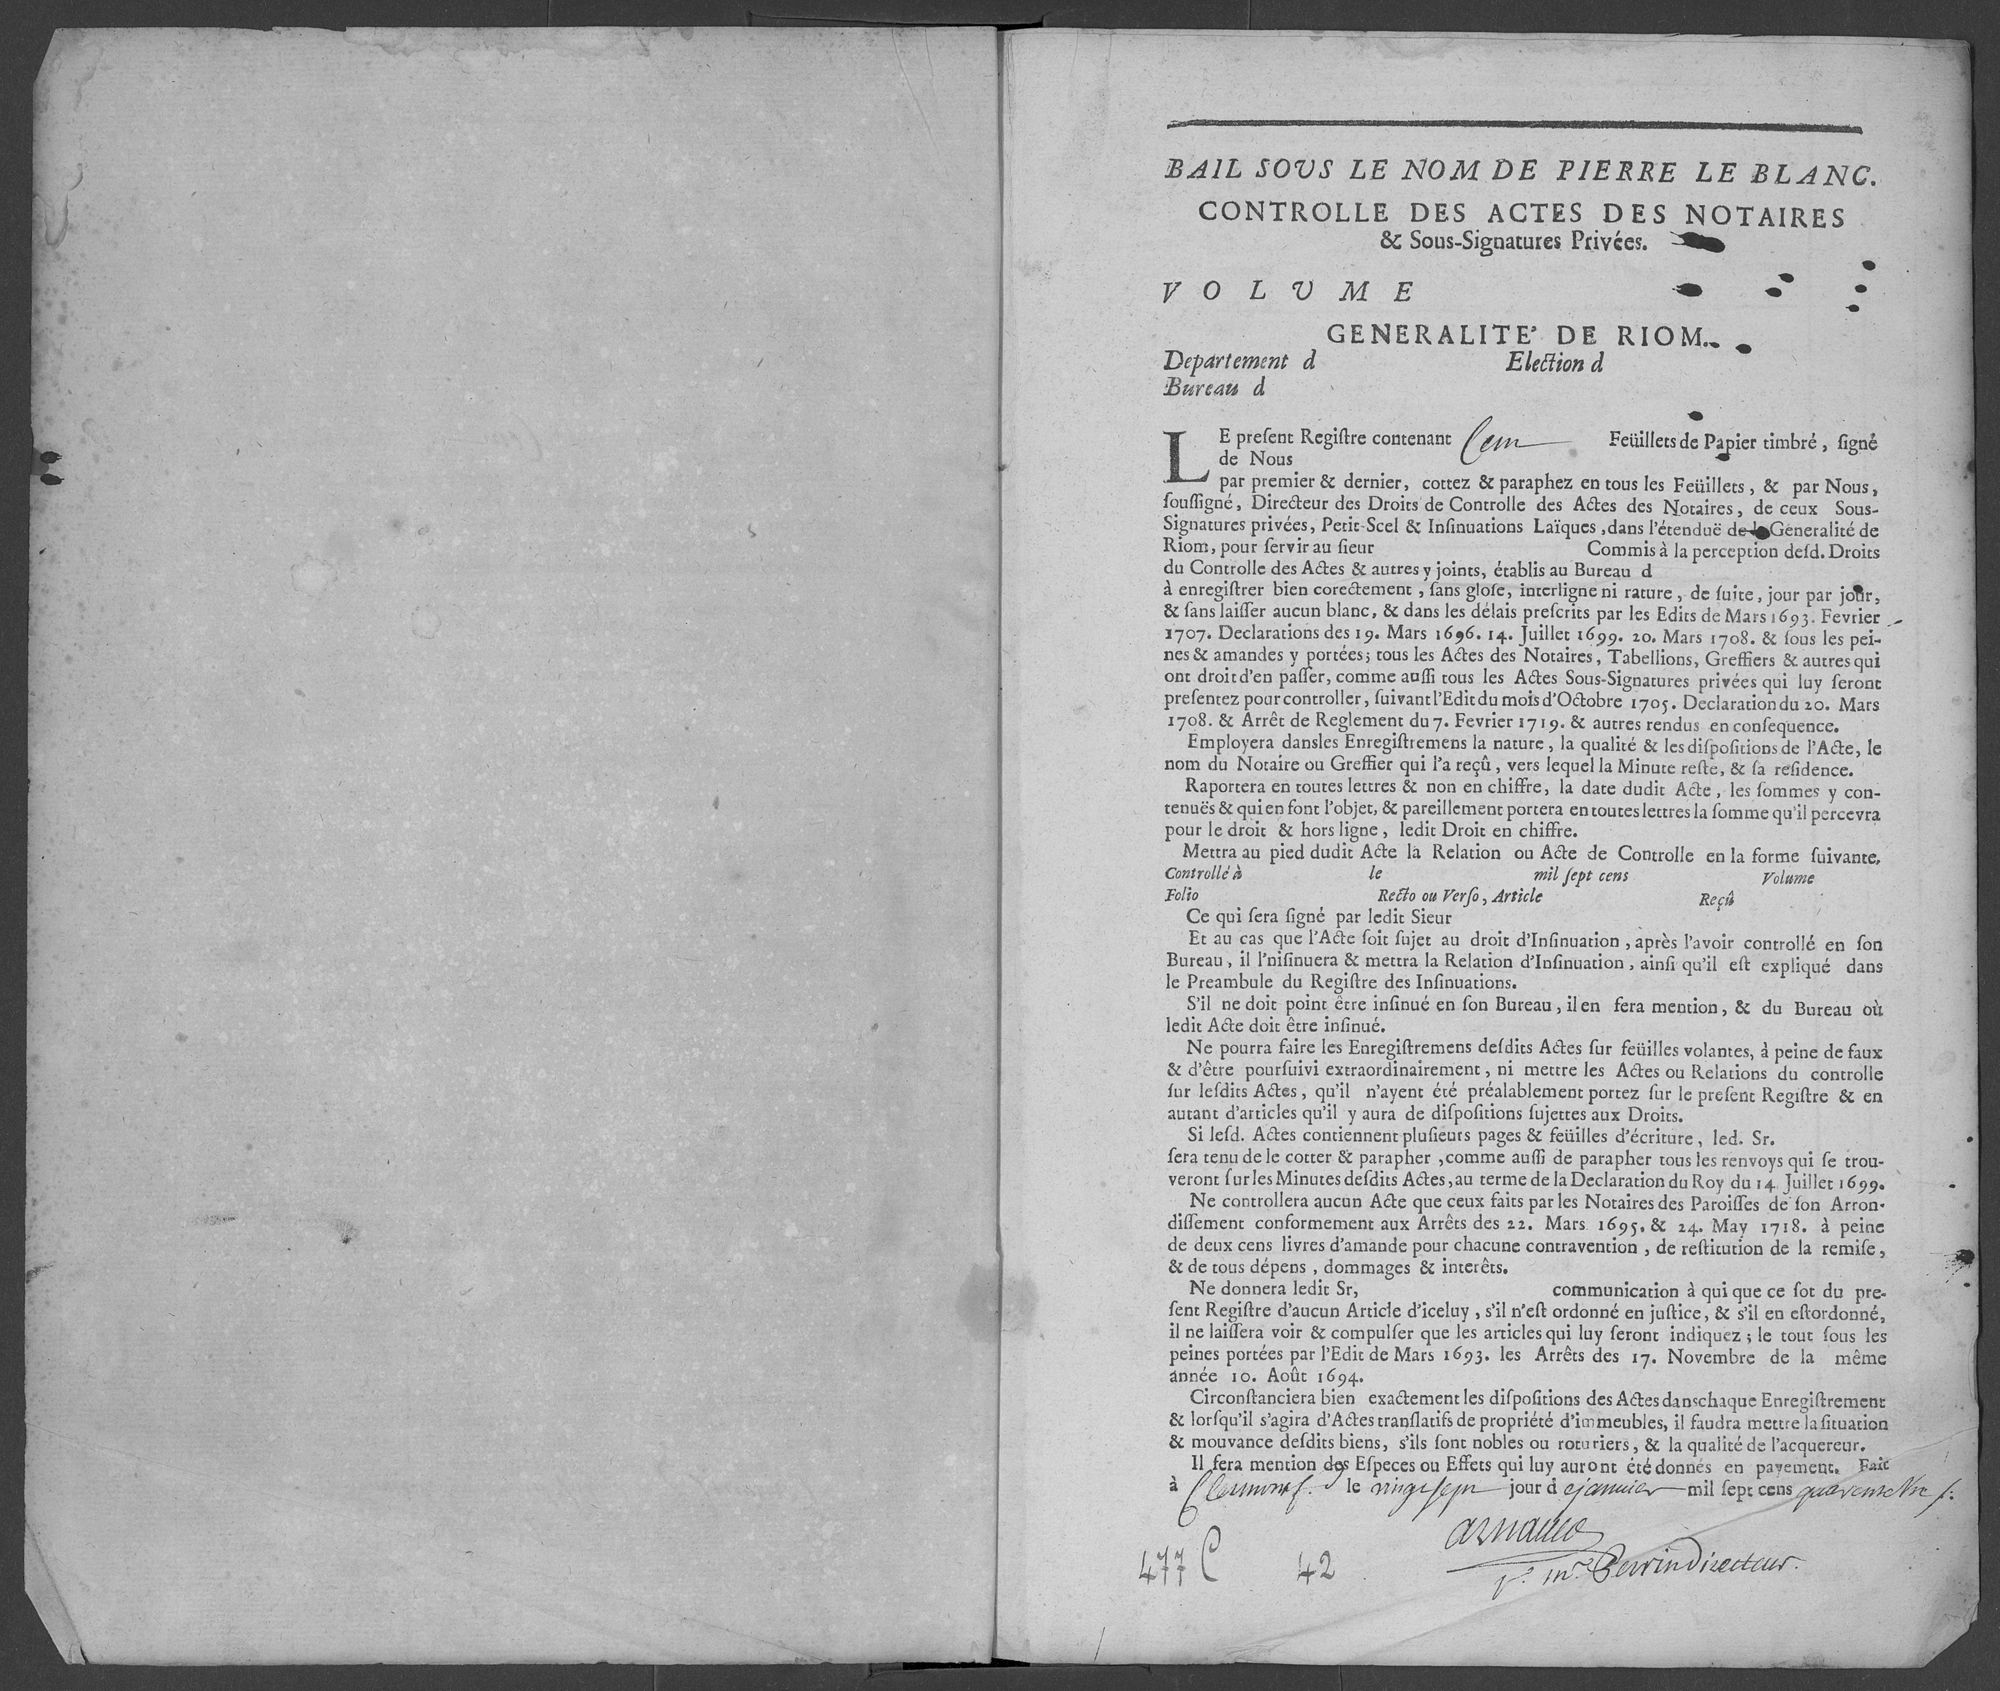 BAIL SOUS LE NOM DE PIERRE LE BLANC.
CONTROLLE DES ACTES DES NOTAIRES
& Sous-Signatures Privées.
VOLUME
GENERALITE' DE RIOM.
Departement d Election d
Bureau d
LE preſent Regiſtre contenant Cent Feüillets de Papier timbré, ſigné
de Nous
par premier & dernier, cottez & paraphez en tous les Feüillets, & par Nous,
ſouſſigné, Directeur des Droits de Controlle des Actes des Notaires, de ceux Sous-
Signatures privées, Petit-Scel & Inſinuations Laïques, dans l'étenduë de la Generalité de
Riom, pour ſervir au ſieur Commis à la perception deſd. Droits
du Controlle des Actes & autres y joints, établis au Bureau d
à enregiſtrer bien corectement, ſans gloſe, interligne ni rature, de ſuite, jour par jour,
& ſans laiſſer aucun blanc, & dans les délais preſcrits par les Edits de Mars 1693. Fevrier
1707. Declarations des 19. Mars 1696. 14. Juillet 1699. 20. Mars 1708. & ſous les pei-
nes & amandes y portées; tous les Actes des Notaires, Tabellions, Greffiers & autres qui
ont droit d'en paſſer, comme auſſi tous les Actes Sous-Signatures privées qui luy ſeront
preſentez pour controller, ſuivant l'Edit du mois d'Octobre 1705. Declaration du 20. Mars
1708. & Arrêt de Reglement du 7. Fevrier 1719. & autres rendus en conſequence.
Employera dans les Enregiſtremens la nature, la qualité & les diſpoſitions de l'Acte, le
nom du Notaire ou Greffier qui l'a reçû, vers lequel la Minute reſte, & ſa reſidence.
Raportera en toutes lettres & non en chiffre, la date dudit Acte, les ſommes y con-
tenuës & qui en font l'objet, & pareillement portera en toutes lettres la ſomme qu'il percevra
pour le droit & hors ligne, ledit Droit en chiffre.
Mettra au pied dudit Acte la Relation ou Acte de Controlle en la forme ſuivante,
Controllé à le mil ſept cens Volume
Folio Recto ou Verſo, Article Reçû
Ce qui ſera ſigné par ledit Sieur
Et au cas que l'Acte ſoit ſujet au droit d'Inſinuation, après l'avoir controllé en ſon
Bureau, il l'niſinuera & mettra la Relation d'Inſinuation, ainſi qu'il eſt expliqué dans
le Preambule du Regiſtre des Inſinuations.
S'il ne doit point être inſinué en ſon Bureau, il en fera mention, & du Bureau où
ledit Acte doit être inſinué.
Ne pourra faire les Enregiſtremens deſdits Actes ſur feüilles volantes, à peine de faux
& d'être pourſuivi extraordinairement, ni mettre les Actes ou Relations du controlle
ſur leſdits Actes, qu'il n'ayent été préalablement portez ſur le preſent Regiſtre & en
autant d'articles qu'il y aura de diſpoſitions ſujettes aux Droits.
Si leſd. Actes contiennent pluſieurs pages & feüilles d'écriture, led. Sr.
ſera tenu de le cotter & parapher, comme auſſi de parapher tous les renvoys qui ſe trou-
veront ſur les Minutes deſdits Actes, au terme de la Declaration du Roy du 14 Juillet 1699.
Ne controllera aucun Acte que ceux faits par les Notaires des Paroiſſes de ſon Arron-
diſſement conformement aux Arrêts des 22. Mars 1695. & 24. May 1718. à peine
de deux cens livres d'amande pour chacune contravention, de reſtitution de la remiſe,
& de tous dépens, dommages & interêts.
Ne donnera ledit Sr, communication à qui que ce ſot du pre-
ſent Regiſtre d'aucun Article d'iceluy, s'il n'eſt ordonné en juſtice, & s'il en eſt ordonné,
il ne laiſſera voir & compulſer que les articles qui luy ſeront indiquez; le tout ſous les
peines portées par l'Edit de Mars 1693. les Arrêts des 17. Novembre de la même
année 10. Août 1694.
Circonſtanciera bien exactement les diſpoſitions des Actes dans chaque Enregiſtrement
& lorſqu'il s'agira d'Actes tranſlatifs de propriété d'immeubles, il faudra mettre la ſituation
& mouvance deſdits biens, s'ils ſont nobles ou roturiers, & la qualité de l'acquereur.
Il ſera mention des Eſpeces ou Effets qui luy auront été donnés en payement. Fait
à Clermont f. le vingt sept jour d ejanvier mil ſept cens
Perrin directeur.
477 C 42